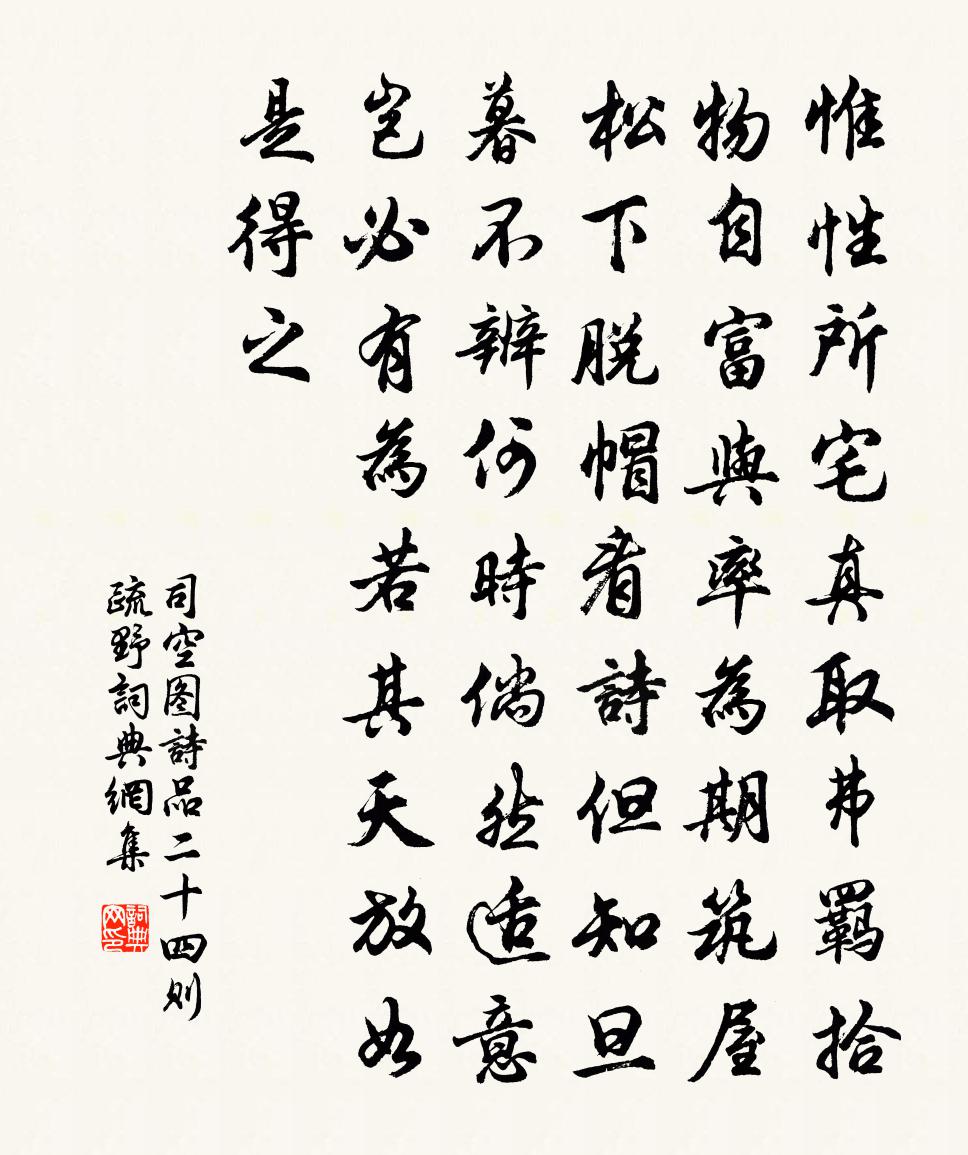 惟性所宅真取弗羈拾
物自富與率為期筑屋
松下脫帽看詩但知旦
暮不辨何時倘然适意
豈必有為若其天放如
是得之
司空图詩品二十四则
疏野詞典網集
詞典网印